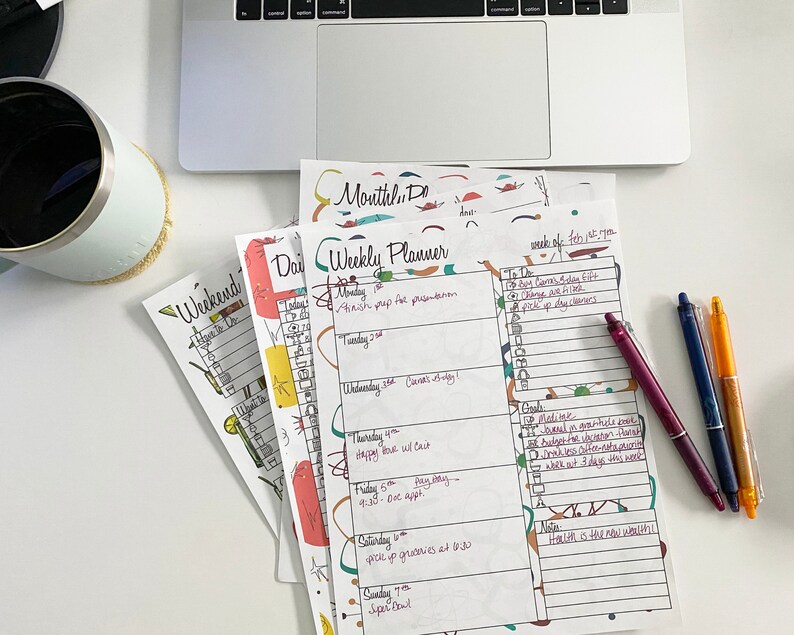 fn
control
option
command
command
option
Monthly Pl
day:
Weekend
Have to Do:
Want to
Dai
Today's
Weekly Planner
week of: Feb 1st-7th
Monday 1st
✓finish prep for presentation
Tuesday 2nd
Wednesday 3rd Ciana's B-day!
Thursday 4th
Happy Hour w/ Cait
Friday 5th Pay Day
9:30 - Doc appt.
Saturday 6th
pick up groceries at 6:30
Sunday 7th
Super Bowl
To Do:
Buy Ciana's B-day Gift
Change air filter
pick up dry cleaners
Goals:
Meditate
Journal in gratitude book
Budget for vacation-Planner
Drink less coffee-not a priority
work out 3 days this week
Notes:
Health is the new wealth!